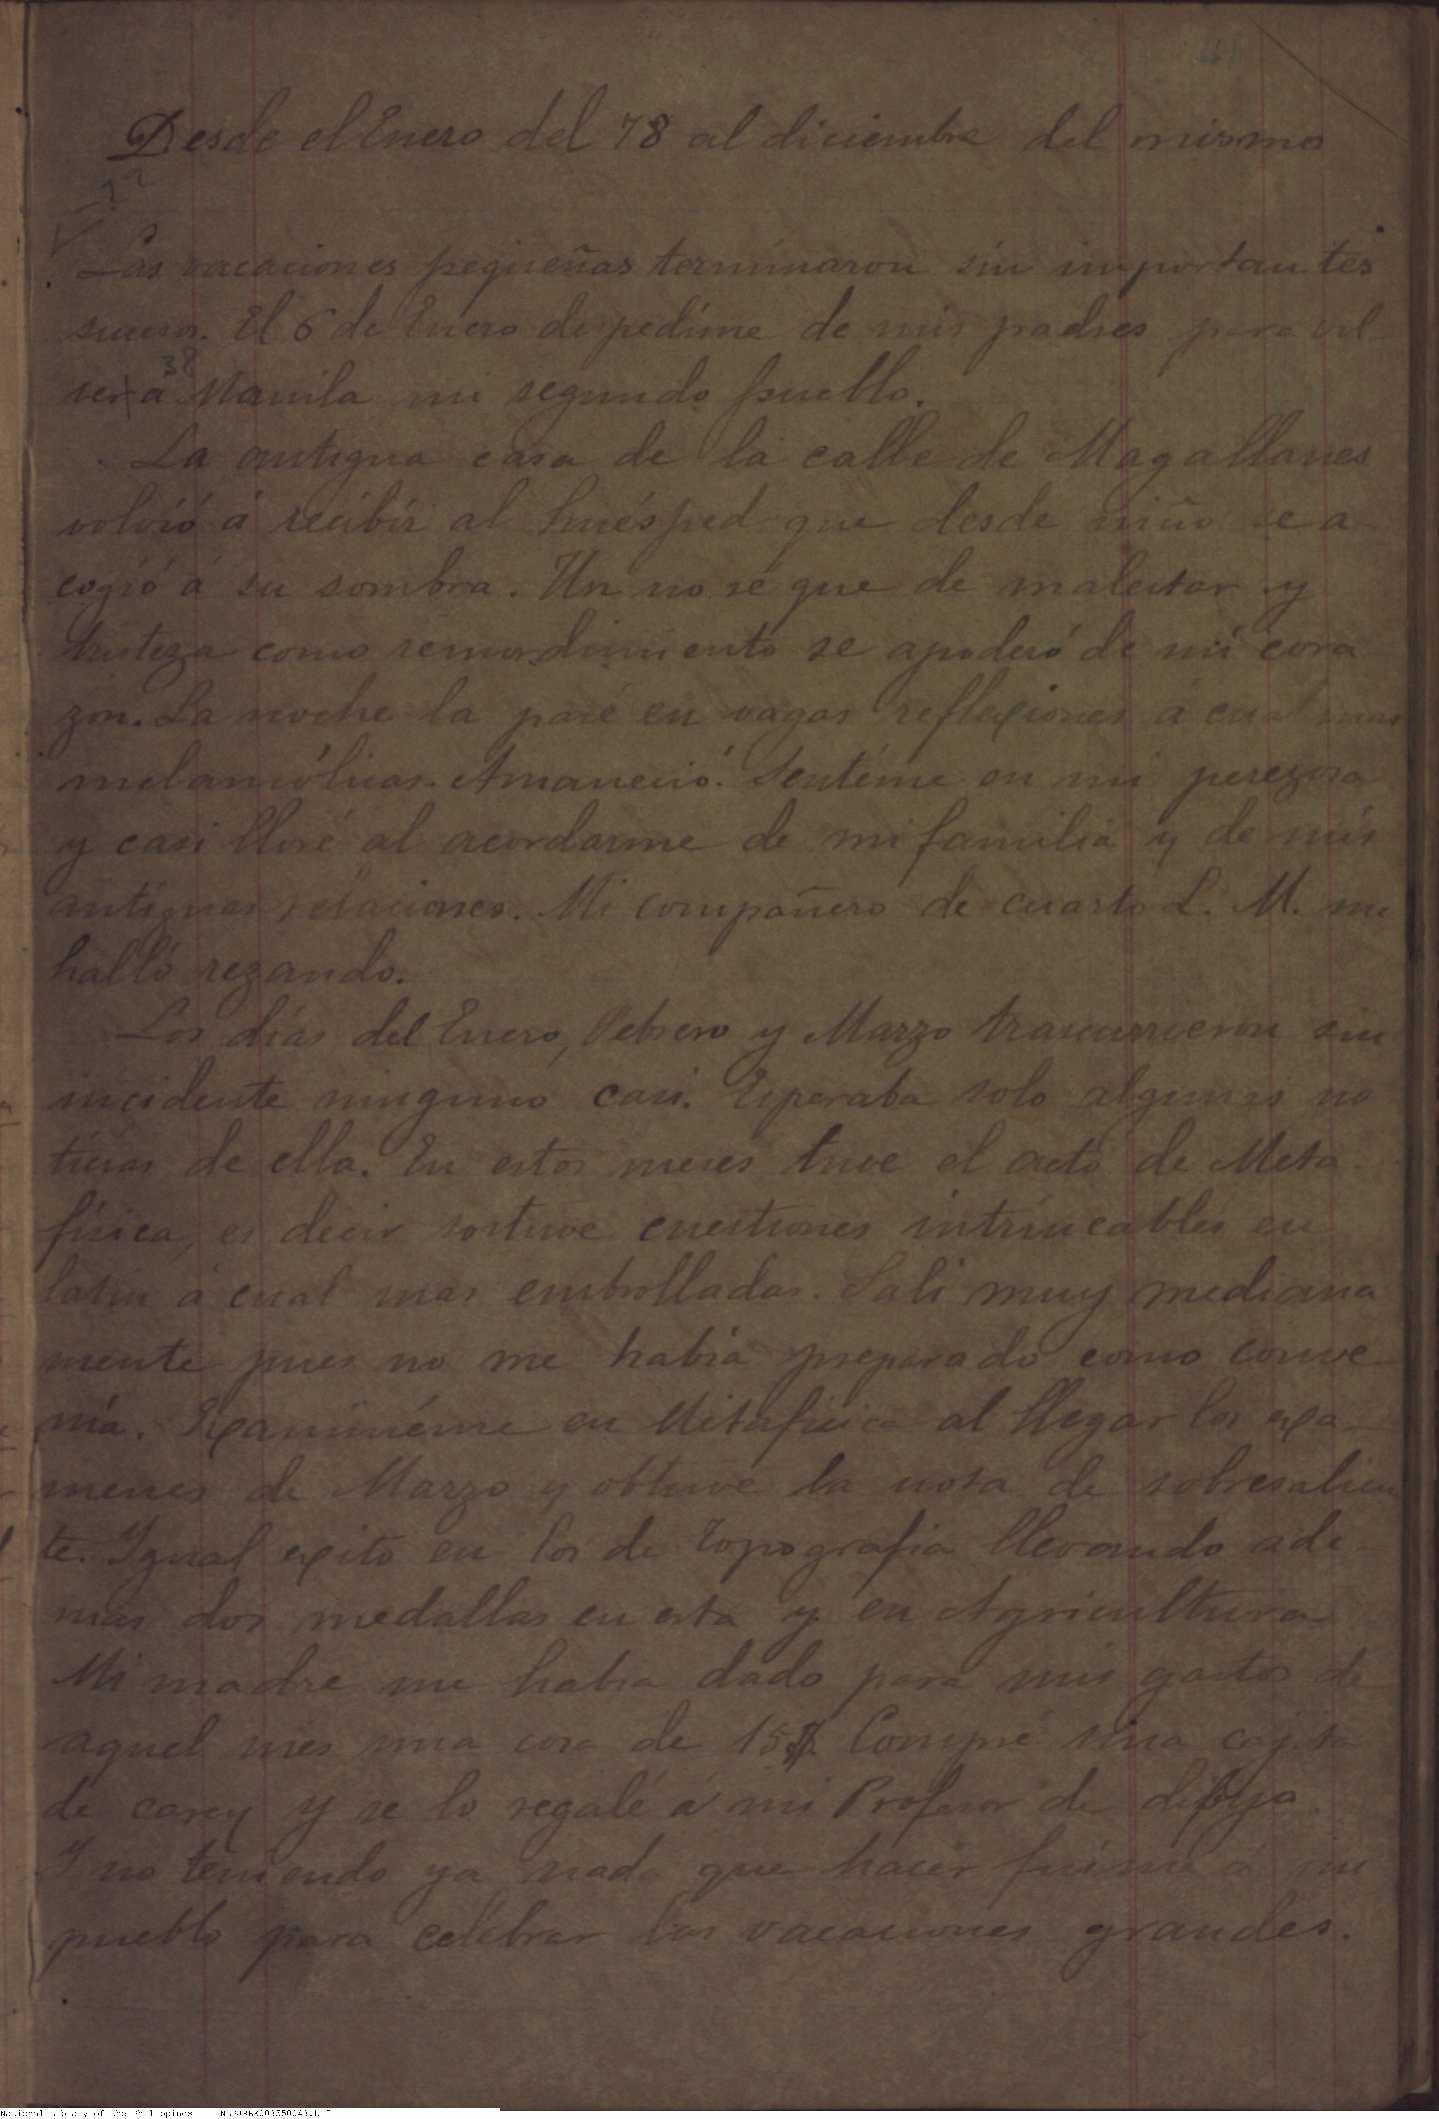 Desde el Enero del 78 al diciembre del mismo
Las vacaciones pequeñas terminaron sin importantes
sucesos. El 6 de Enero despedíme de mis padres para vol
ver á Manila mi segundo pueblo.
38
La antigua casa de la calle de Magallanes
volvió á recibir al huésped que desde niño se a
cogió á su sombra. Un no sé que de malestar y
tristeza como remordimiento se apoderó de mi cora
zon. La noche la pasé en vagas reflexiones á cual mas
melancólicas. Amaneció. Sentéme en mi perezosa
y casi lloré al acordarme de mi familia y de mis
antiguas relaciones. Mi compañero de cuarto L. M. me
halló rezando.
Los días del Enero, Febrero y Marzo trascurrieron sin
incidente ninguno casi. Esperaba solo algunas no
ticias de ella. En estos meses tuve el acto de Meta
física, es decir sostuve cuestiones intrincables en
latin á cual mas embrolladas. Salí muy mediana
mente pues no me había preparado como conve
nía. Examinéme en Metafísica al llegar los exa-
menes de Marzo y obtuve la nota de sobresalien
te. Igual exito en los de Topografia llevando ade
mas dos medallas en esta y en Agricultura
Mi madre me habia dado para mis gastos de
aquel mes una cosa de 15$. Compré una cajita
de carey y se lo regalé á mi Profesor de dibujo.
Y no teniendo ya nada que hacer fuíme á mi
pueblo para celebrar las vacaciones grandes.
National Library of the Philippines